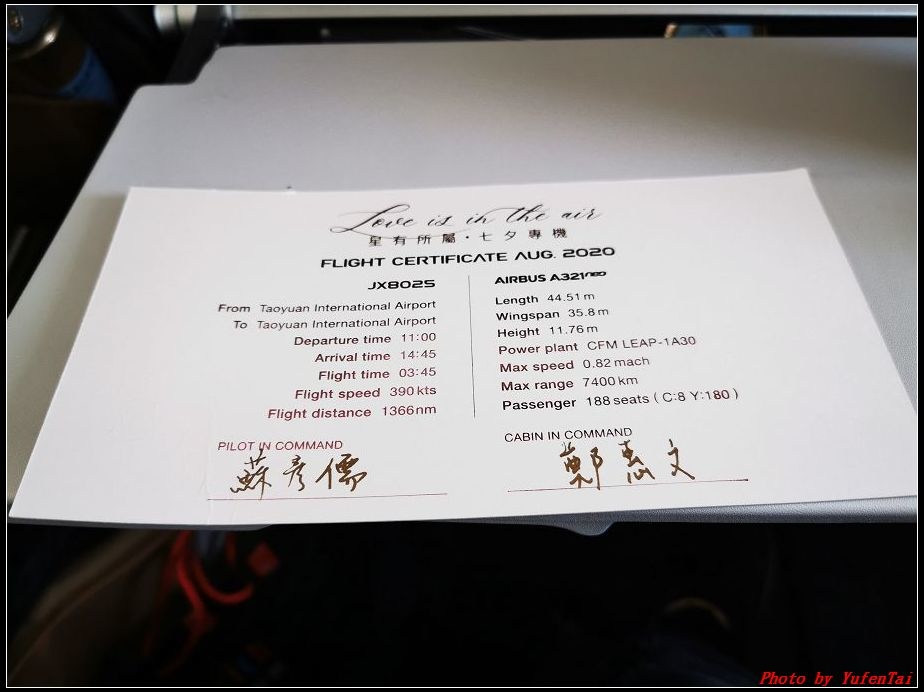 Love is in the air
星有所屬·七夕專機
FLIGHT CERTIFICATE AUG. 2020
JX8025
From Taoyuan International Airport
To Taoyuan International Airport
Departure time 11:00
Arrival time 14:45
Flight time 03:45
Flight speed 390kts
Flight distance 1366nm
PILOT IN COMMAND
蘇彥儒
AIRBUS A321neo
Length 44.51m
Wingspan 35.8m
Height 11.76m
Power plant CFM LEAP-1A30
Max speed 0.82mach
Max range 7400km
Passenger 188seats ( C:8 Y:180 )
CABIN IN COMMAND
鄭惠文
Photo by YufenTai